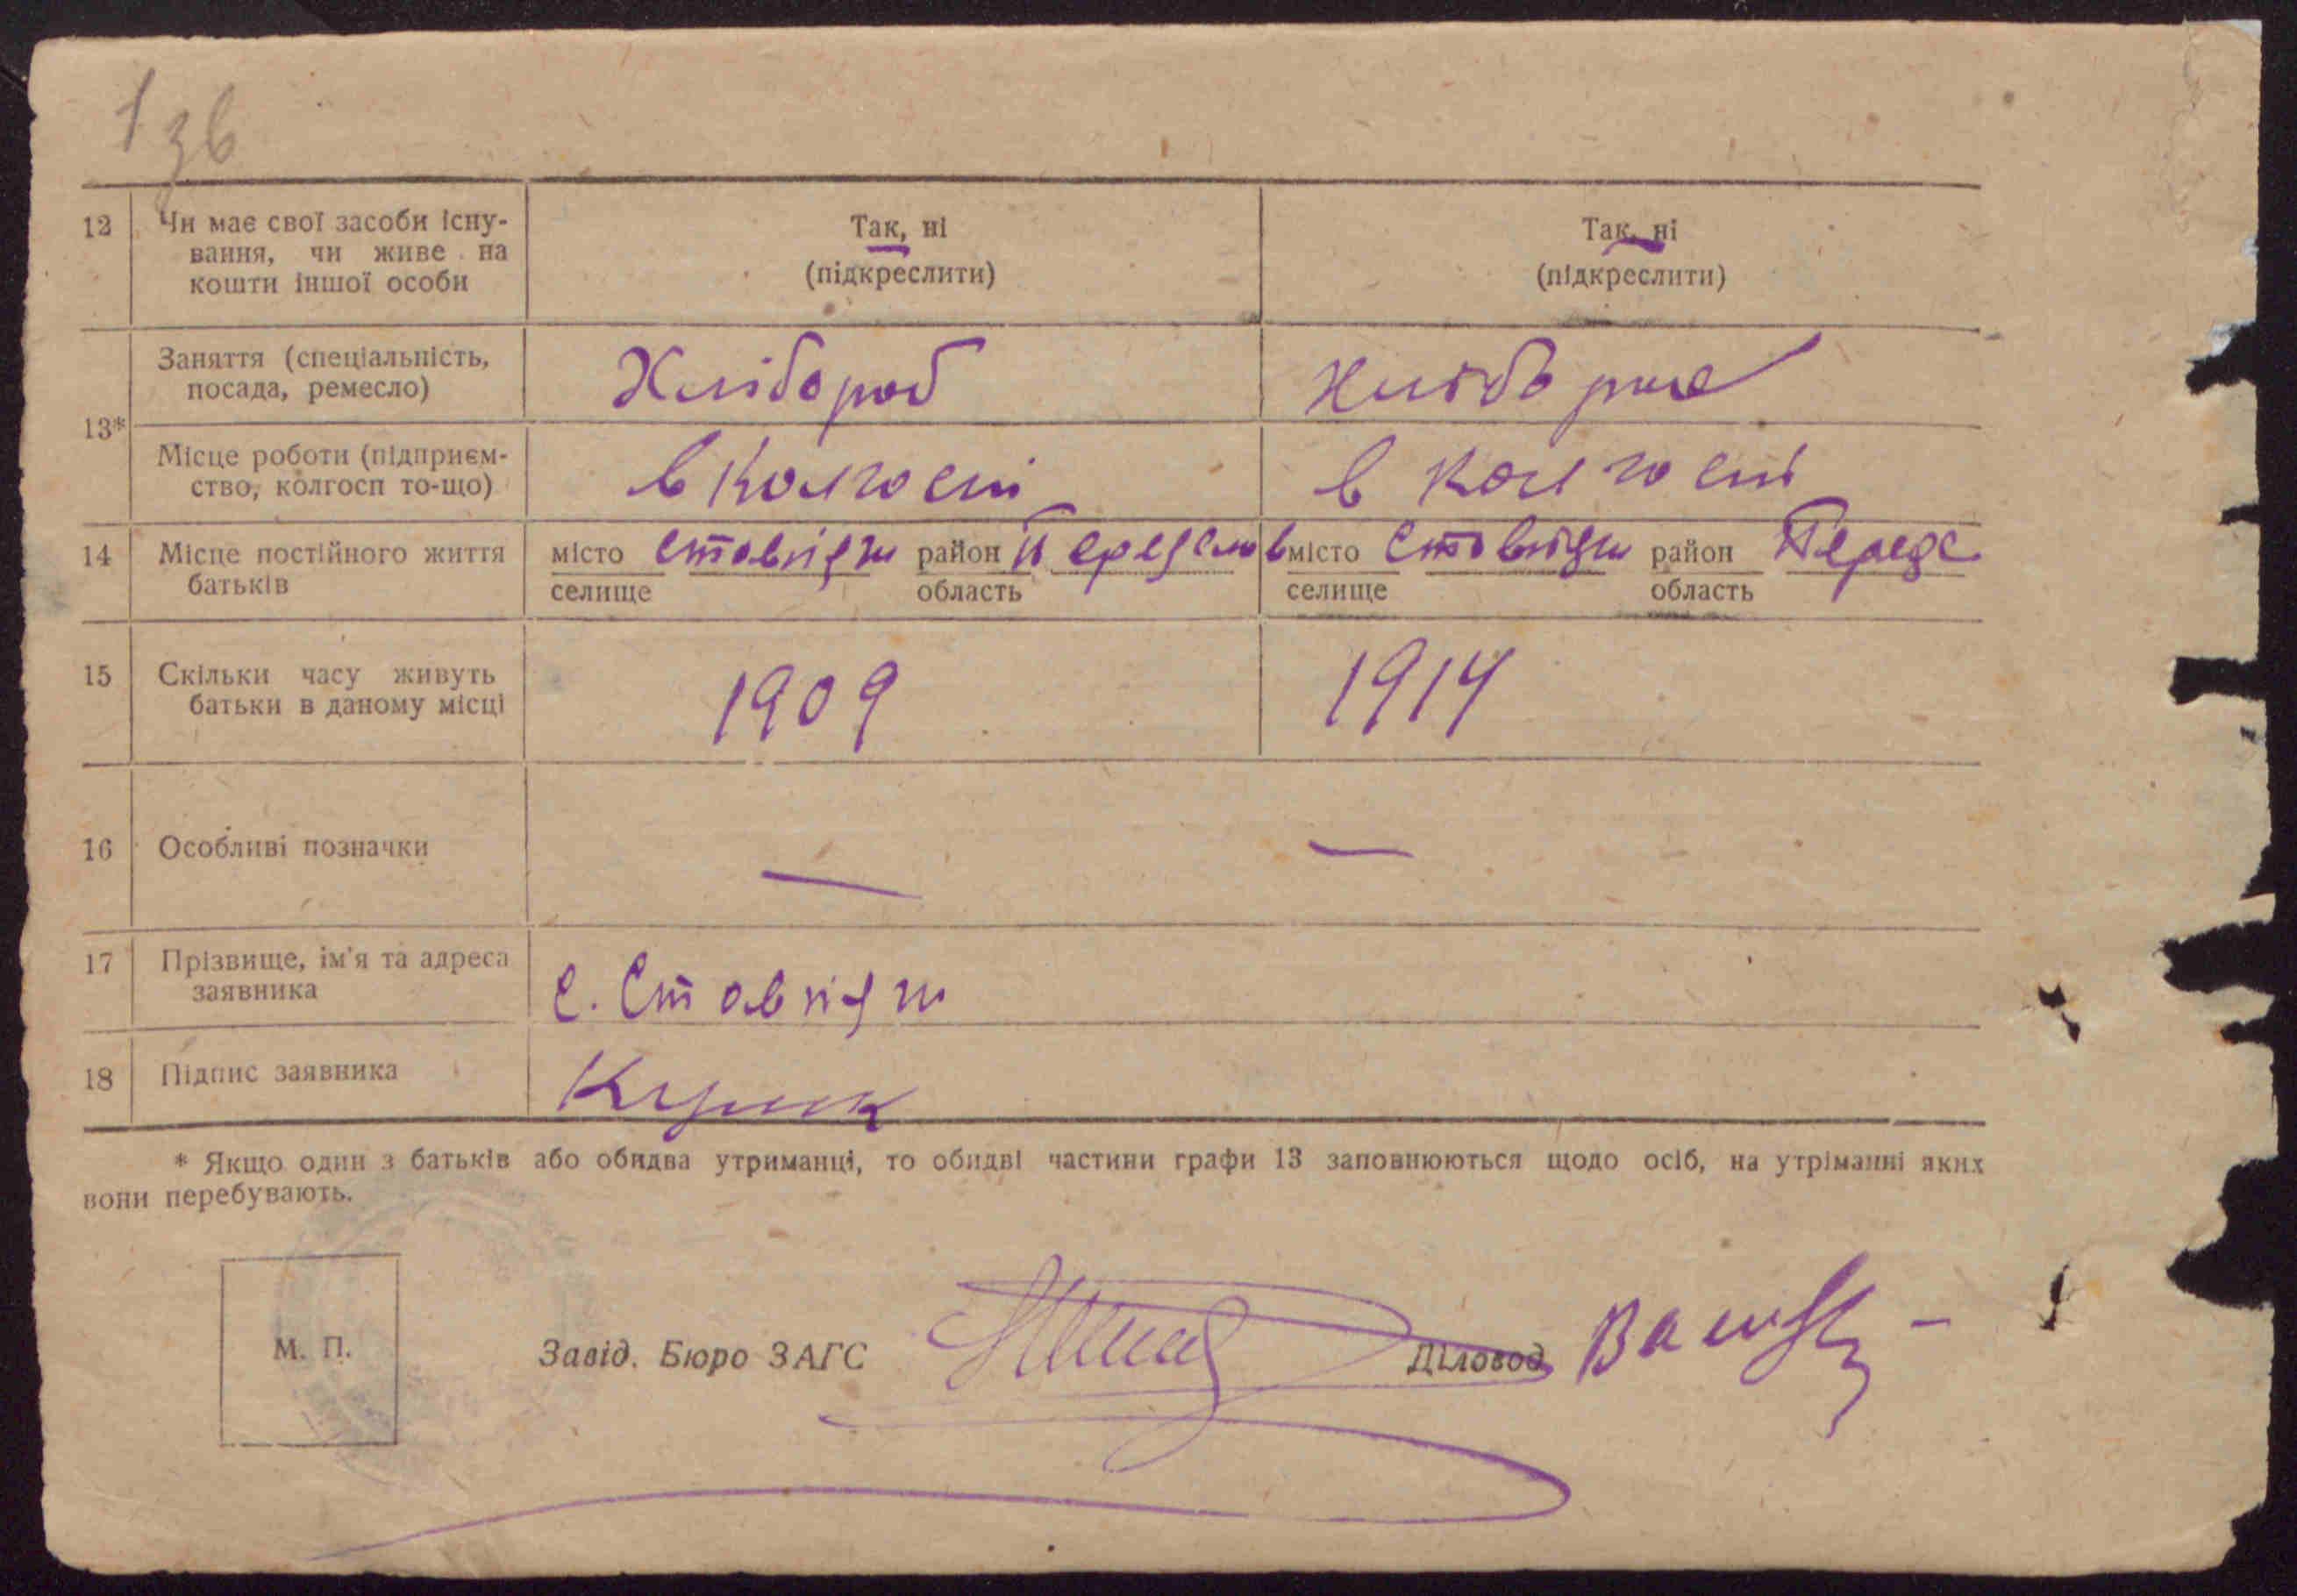 1зв
12 Чи має свої засоби існу- Так, ні Так, ні
вання, чи живе на (підкреслити) (підкреслити)
кошти іншої особи
Заняття (спеціальність, Хлібороб Хлібороб
посада, ремесло)
13*
Місце роботи (підприєм- в Колгоспі в колгоспі
ство, колгосп то-що)
14 Місце постійного життя місто район місто район
батьків селище область селище область
15 Скільки часу живуть 1909 1914
батьки в даному місці
16 Особливі позначки — —
17 Прізвище, ім'я та адреса с.
заявника
18 Підпис заявника
* Якщо один з батьків або обидва утриманці, то обидві частини графи 13 заповнюються щодо осіб, на утріманні яких
вони перебувають.
М. П. Завід. Бюро ЗАГС Діловод